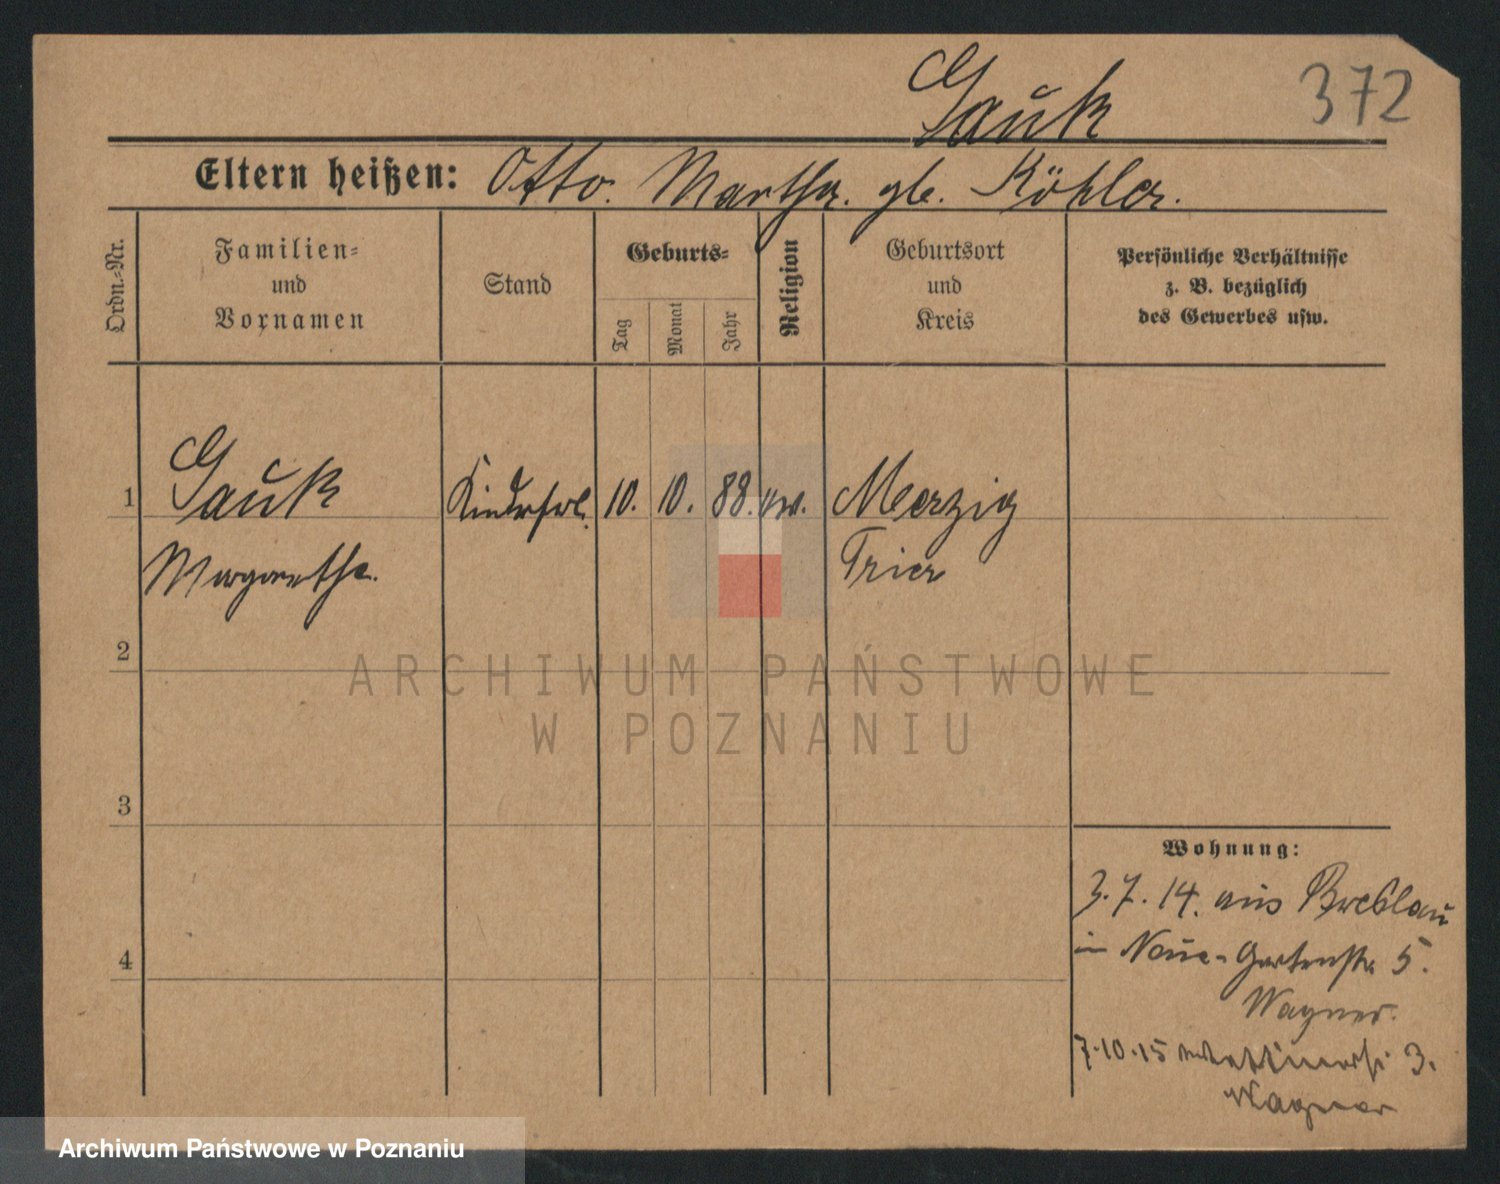 Gauk
372
Eltern heißen: Otto. Martha. gb. Köhler.
Ordn.-Nr.
Familien-
und
Vornamen
Stand
Geburts-
Tag
Monat
Jahr
Religion
Geburtsort
und
Kreis
Persönliche Verhältnisse
z. B. bezüglich
des Gewerbes usw.
1 Gauk Kinderfrl. 10. 10. 88. ev. Merzig
Margarethe. Trier
2
ARCHIWUM PAŃSTWOWE
W POZNANIU
3
Wohnung:
3.7.14. aus Breslau
in Neue-Gartenstr 5.
4
Wagner.
7.10.15 3.
Wagner
Archiwum Państwowe w Poznaniu